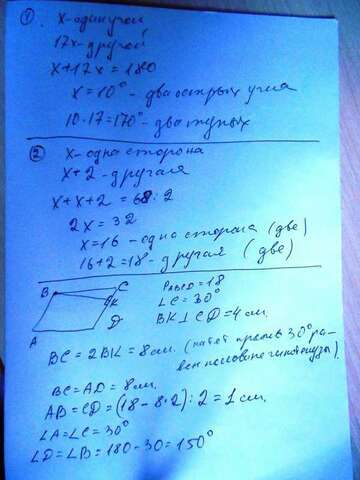 ①
х-один угол
17х-другой
х+17х=180
х=10°- два острых угла
10·17=170°- два тупых
②
х-одна сторона
х+2-другая
х+х+2=68:2
2х=32
х=16-одна сторона (две)
16+2=18-другая (две)
B C K A D
PABCD=18
∠C=30°
BK⊥CD=4см.
BC=2BK=8см. (катет против 30° ра-
вен половине гипотенузы)
BC=AD=8см.
AB=CD=(18-8·2):2=1см.
∠A=∠C=30°
∠D=∠B=180-30=150°